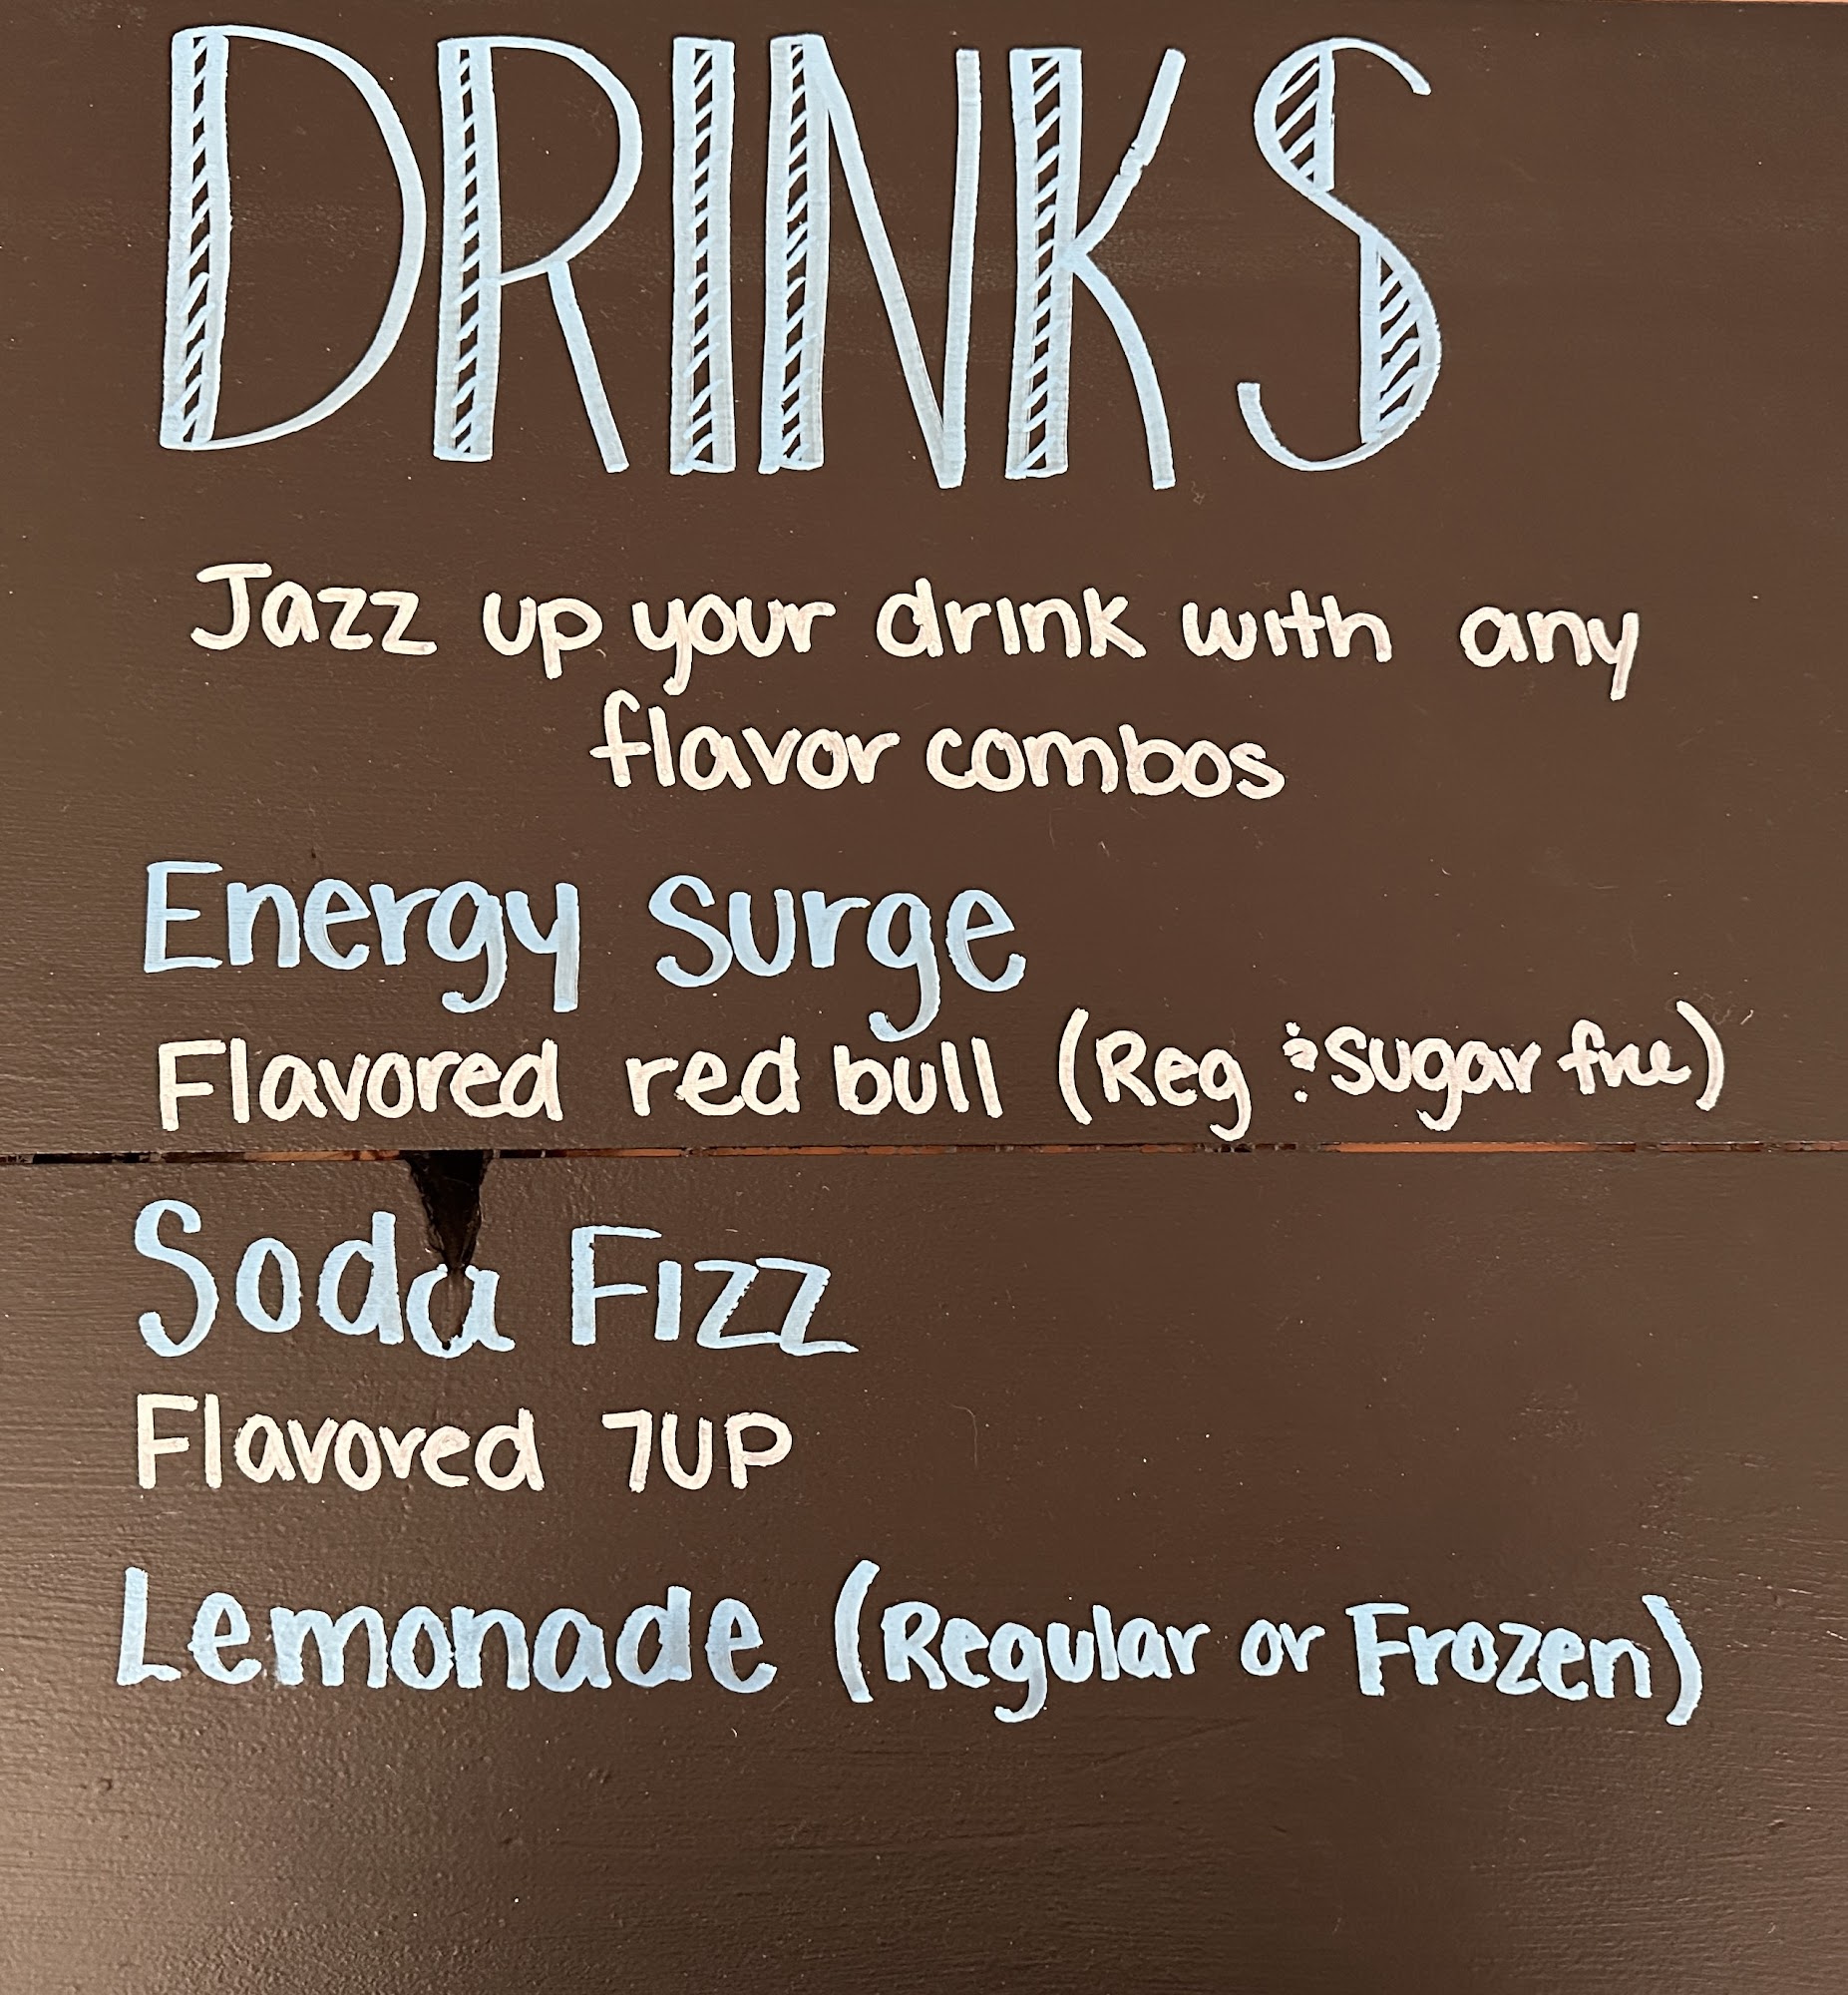 DRINKS
Jazz up your drink with any
flavor combos
Energy Surge
Flavored red bull (Reg & Sugar free)
Soda Fizz
Flavored 7UP
Lemonade (Regular or Frozen)